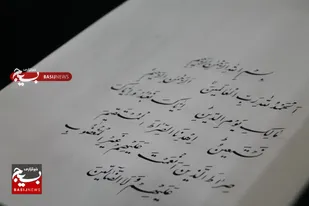 بسم الله الرحمن الرحیم
الحمد لله رب العالمین الرحمن الرحیم
مالک یوم الدین ایاک نعبد و ایاک
نستعین اهدنا الصراط المستقیم
صراط الذین انعمت علیهم غیر المغضوب
علیهم و لا الضالین
بسیج
BASIJNEWS
بسیج
BASIJNEWS